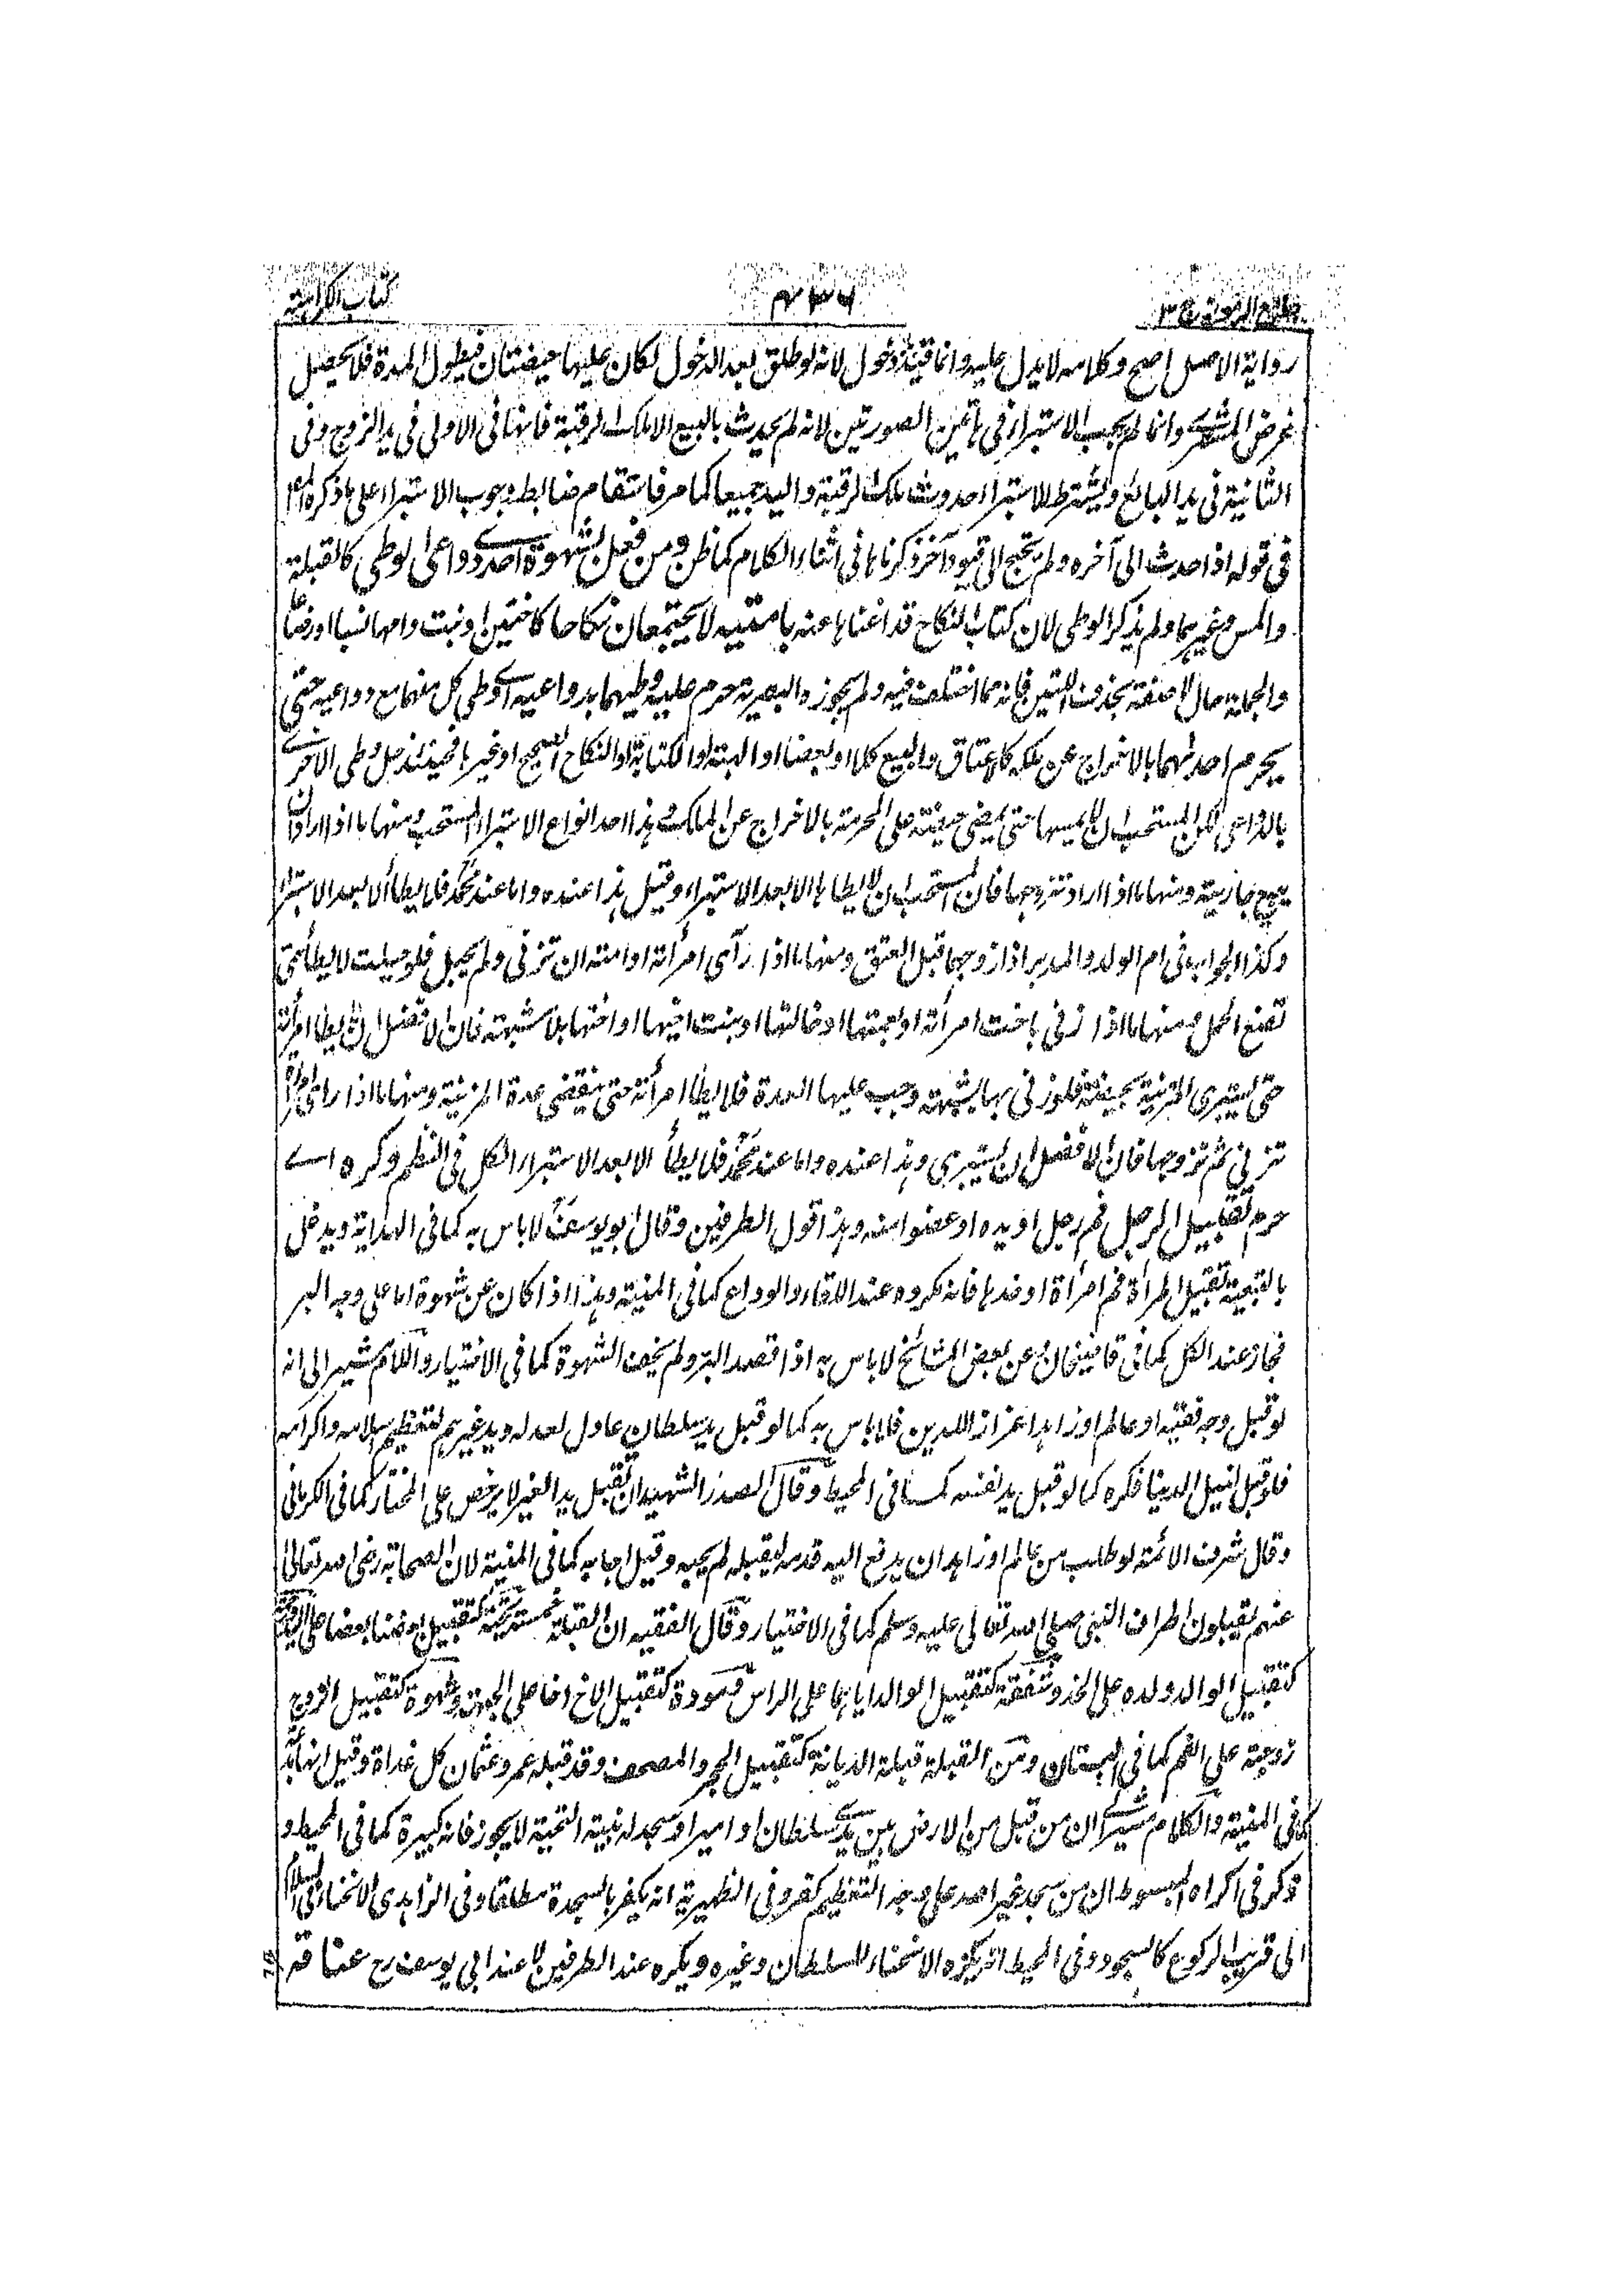 جامع الرموز ج ٣
كتاب الكراهية
رواية الاصل اصح وكلامه لا يدل عليه وانما قيد بدخول لانه لو طلق بعد الدخول لكان عليها حيضتان فيطول المدة فلا يحصل
غرض المشتري وانما لم يجب الاستبراء في هاتين الصورتين لانه لم يحدث بالبيع الا ملك الرقبة فانها في الاولى في يد الزوج وفي
الثانية في يد البائع ويشترط للاستبراء حدوث ملك الرقبة واليد جميعا كما مر فاستقام ضابط وجوب الاستبراء على ما ذكره
في قوله اذا حدث الى آخره ولم يحتج الى قيود آخر ذكرناها في اثناء الكلام كما ظن ومن فعل بشهوة احدى دواعي الوطي كالقبلة
والمس وغيرهما ولم يذكر الوطي لان كتاب النكاح قد اغنانا عنه بامتيه لا يجتمعان نكاحا كاختين او بنت وامها نسبا او رضاعا
والجملة حال لا صفة بحذف اللتين فانه مما اختلف فيه ولم يجوزه البصرية حرم عليه وطيهما بدواعيه اي وطي كل منهما مع دواعيه حتى
يحرم احدهما بالاخراج عن ملكه كالاعتاق والبيع كلا او بعضا او الهبة او الكتابة او النكاح الصحيح او غيرها فحينئذ حل وطي الاخرى
بالدواعي لكن المستحب ان لا يمسها حتى يمضي حيضة على المحرمة بالاخراج عن الملك وهذا احد انواع الاستبراء المستحب ومنها ما اذا اراد ان
يبيع جاريته ومنها ما اذا اراد تزوجها فان المستحب ان لا يطأها الا بعد الاستبراء وقيل هذا عنده واما عند محمد فلا يطأ الا بعد الاستبراء
وكذا الجواب في ام الولد والمدبر اذا زوجها قبل العتق ومنها ما اذا رآى امرأته او امته ان تزني ولم يحبل فلو حبلت لا يطأ حتى
تضع الحمل ومنها ما اذا زنى باخت امرأته او بعمتها او خالتها او بنت اخيها او اختها بلا شبهة فان الافضل ان لا يطأ امرأته
حتى يستبري المزنية بحيضة فلو زنى بها بشبهة وجب عليها العدة فلا يطأ امرأته حتى ينقضي عدة المزنية ومنها ما اذا رأى امرأة
تزني ثم تزوجها فان الافضل ان يستبري وهذا عنده واما عند محمد فلا يطأ الا بعد الاستبراء الكل في النظم وكره اي
حرم تقبيل الرجل فم رجل او يده او عضوا منه وهذا قول الطرفين وقال ابو يوسف لا باس به كما في الهداية ويدخل
بالتبعية تقبيل المرأة فم امرأة او خدها فانه مكروه عند اللقاء والوداع كما في المنية وهذا اذا كان عن شهوة اما على وجه البر
فجاز عند الكل كما في قاضيخان وعن بعض المشائخ لا باس به اذا قصد البر ولم يخف الشهوة كما في الاختيار والكلام مشير الى انه
لو قبل وجه فقيه او عالم او زاهد اعزازا للدين فلا باس به كما لو قبل يد سلطان عادل لعدله ويد غيرهم لتعظيم اسلامه واكرامه
فلو قبل لنيل الدينا فكره كما لو قبل يد نفسه كما في المحيط وقال الصدر الشهيد ان تقبيل يد الغير لا يرخص على المختار كما في الكرماني
وقال شرف الائمة لو طلب من عالم او زاهد ان يدفع اليه قدمه ليقبله لم يجبه وقيل اجابه كما في المنية لان الصحابة رضي الله تعالى
عنهم يقبلون اطراف النبي صلى الله تعالى عليه وسلم كما في الاختيار وقال الفقيه ان القبلة خمسة تحية كتقبيل بعضنا بعضا على اليد ورحمة
كتقبيل الوالد ولده على الخد وشفقة كتقبيل الوالد اياهما على الراس ومودة كتقبيل الاخ اخا على الجبهة وشهوة كتقبيل الزوج
زوجته على الفم كما في البستان ومن القبلة قبلة الديانة كتقبيل الحجر والمصحف وقد قبله عمر وعثمان كل غداة وقيل انها بدعة
كما في المنية والكلام مشير الى ان من قبل من الارض بين يدي سلطان او امير او سجد له بنية التحية لا يجوز فانه كبيرة كما في المحيط و
ذكر في اكراه المبسوط ان من سجد غير الله على وجه التعظيم كفر وفي الظهيرية انه يكفر بالسجدة مطلقا وفي الزاهدي الانحناء في السلام
الى قريب الركوع كالسجود وفي المحيط انه يكره الانحناء للسلطان وغيره ويكره عند الطرفين لا عند ابي يوسف رح عناقه